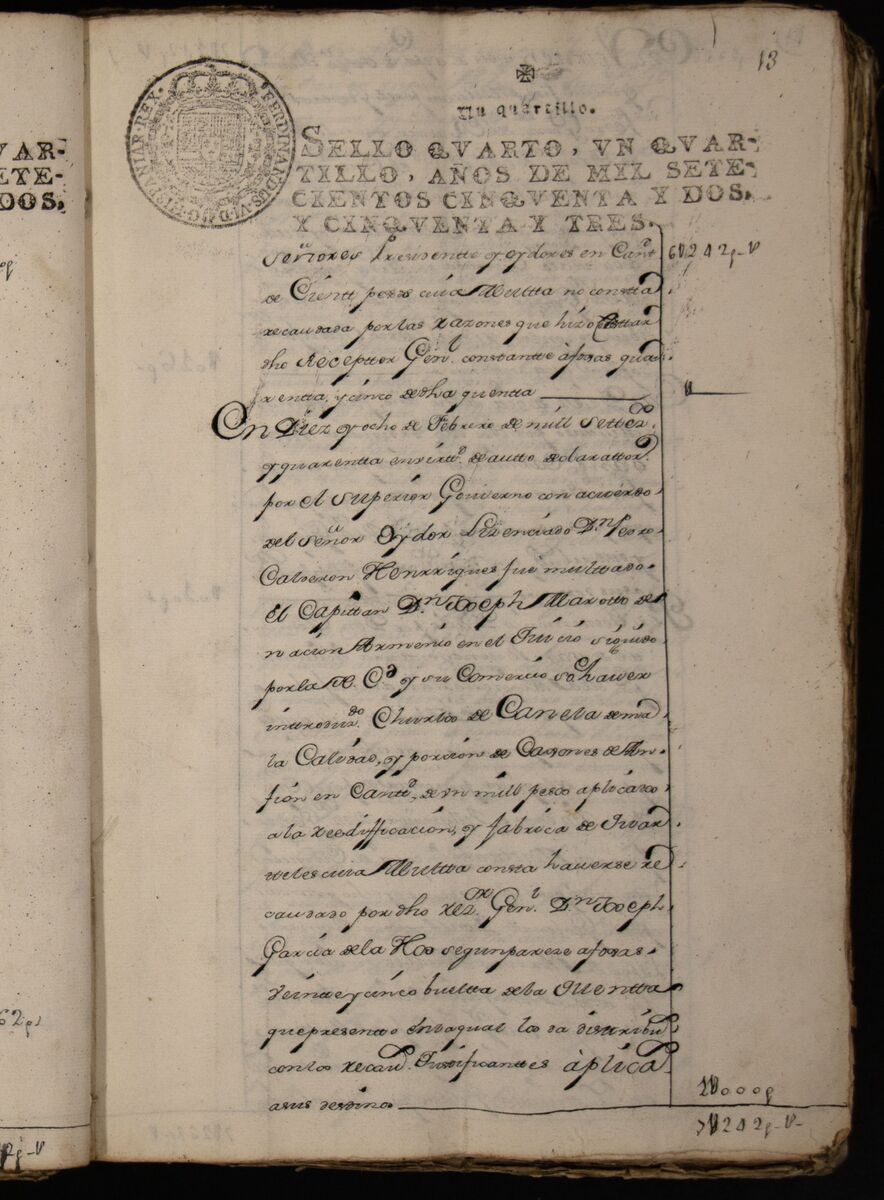 13
Un quartillo.
FERDINANDUS. VI. D. G. HISPANIAR. REX.
SELLO QVARTO, VN QVAR-
TILLO, AÑOS DE MIL SETE-
CIENTOS CINQVENTA Y DOS.
Y CINQVENTA Y TRES.
VAR-
ETE-
DOS.
Señores Precidentte y oydores en Cantt.
de Cientt pesos cuia Multta no constta
recaudada por las razones que hizo Consttar
dho Recepttor Genl. constantte à foxas qua
rentta, y cinco de dha quentta
6U242p-U
U
En Diez y ocho de Febrero de mill settezs.
y quarentta en virttd. de autto declarattorio
por el Superior Govierno con acuerdo
del señor Oydor Lizenciado Dn. Pedro
Calderon Henrriques fue multtado
El Capittan Dn. Joseph Marotto de
nacion Armenio en el Juicio seguido
por la N. Cd. y su Comercio sre. haver
inttroduzdo. Churlos de Canela de ma
la Calidad, y porcion de Caxones de An
fion en Cantd. de un mill pesos aplicado
a la reedifficacion, y fabrica de Quar
teles cuia Multta consta haverse re
caudado por dho rezr. Genl. Dn. Joseph
Garcia de la Hoo segun pareze a foxas
Veintte y cinco buelta de la Quentta
que presentto en la qual los da distribu
con los recaud. Justificanttes àplica
a su destino
1U000p
7U242p-U-
62p